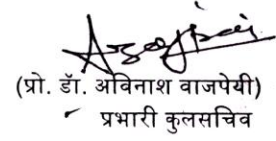 (प्रो. डॉ. अविनाश वाजपेयी)
प्रभारी कुलसचिव